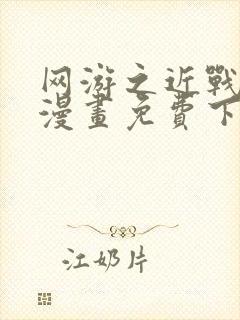 网游之近戰
漫畫免費下
江奶片